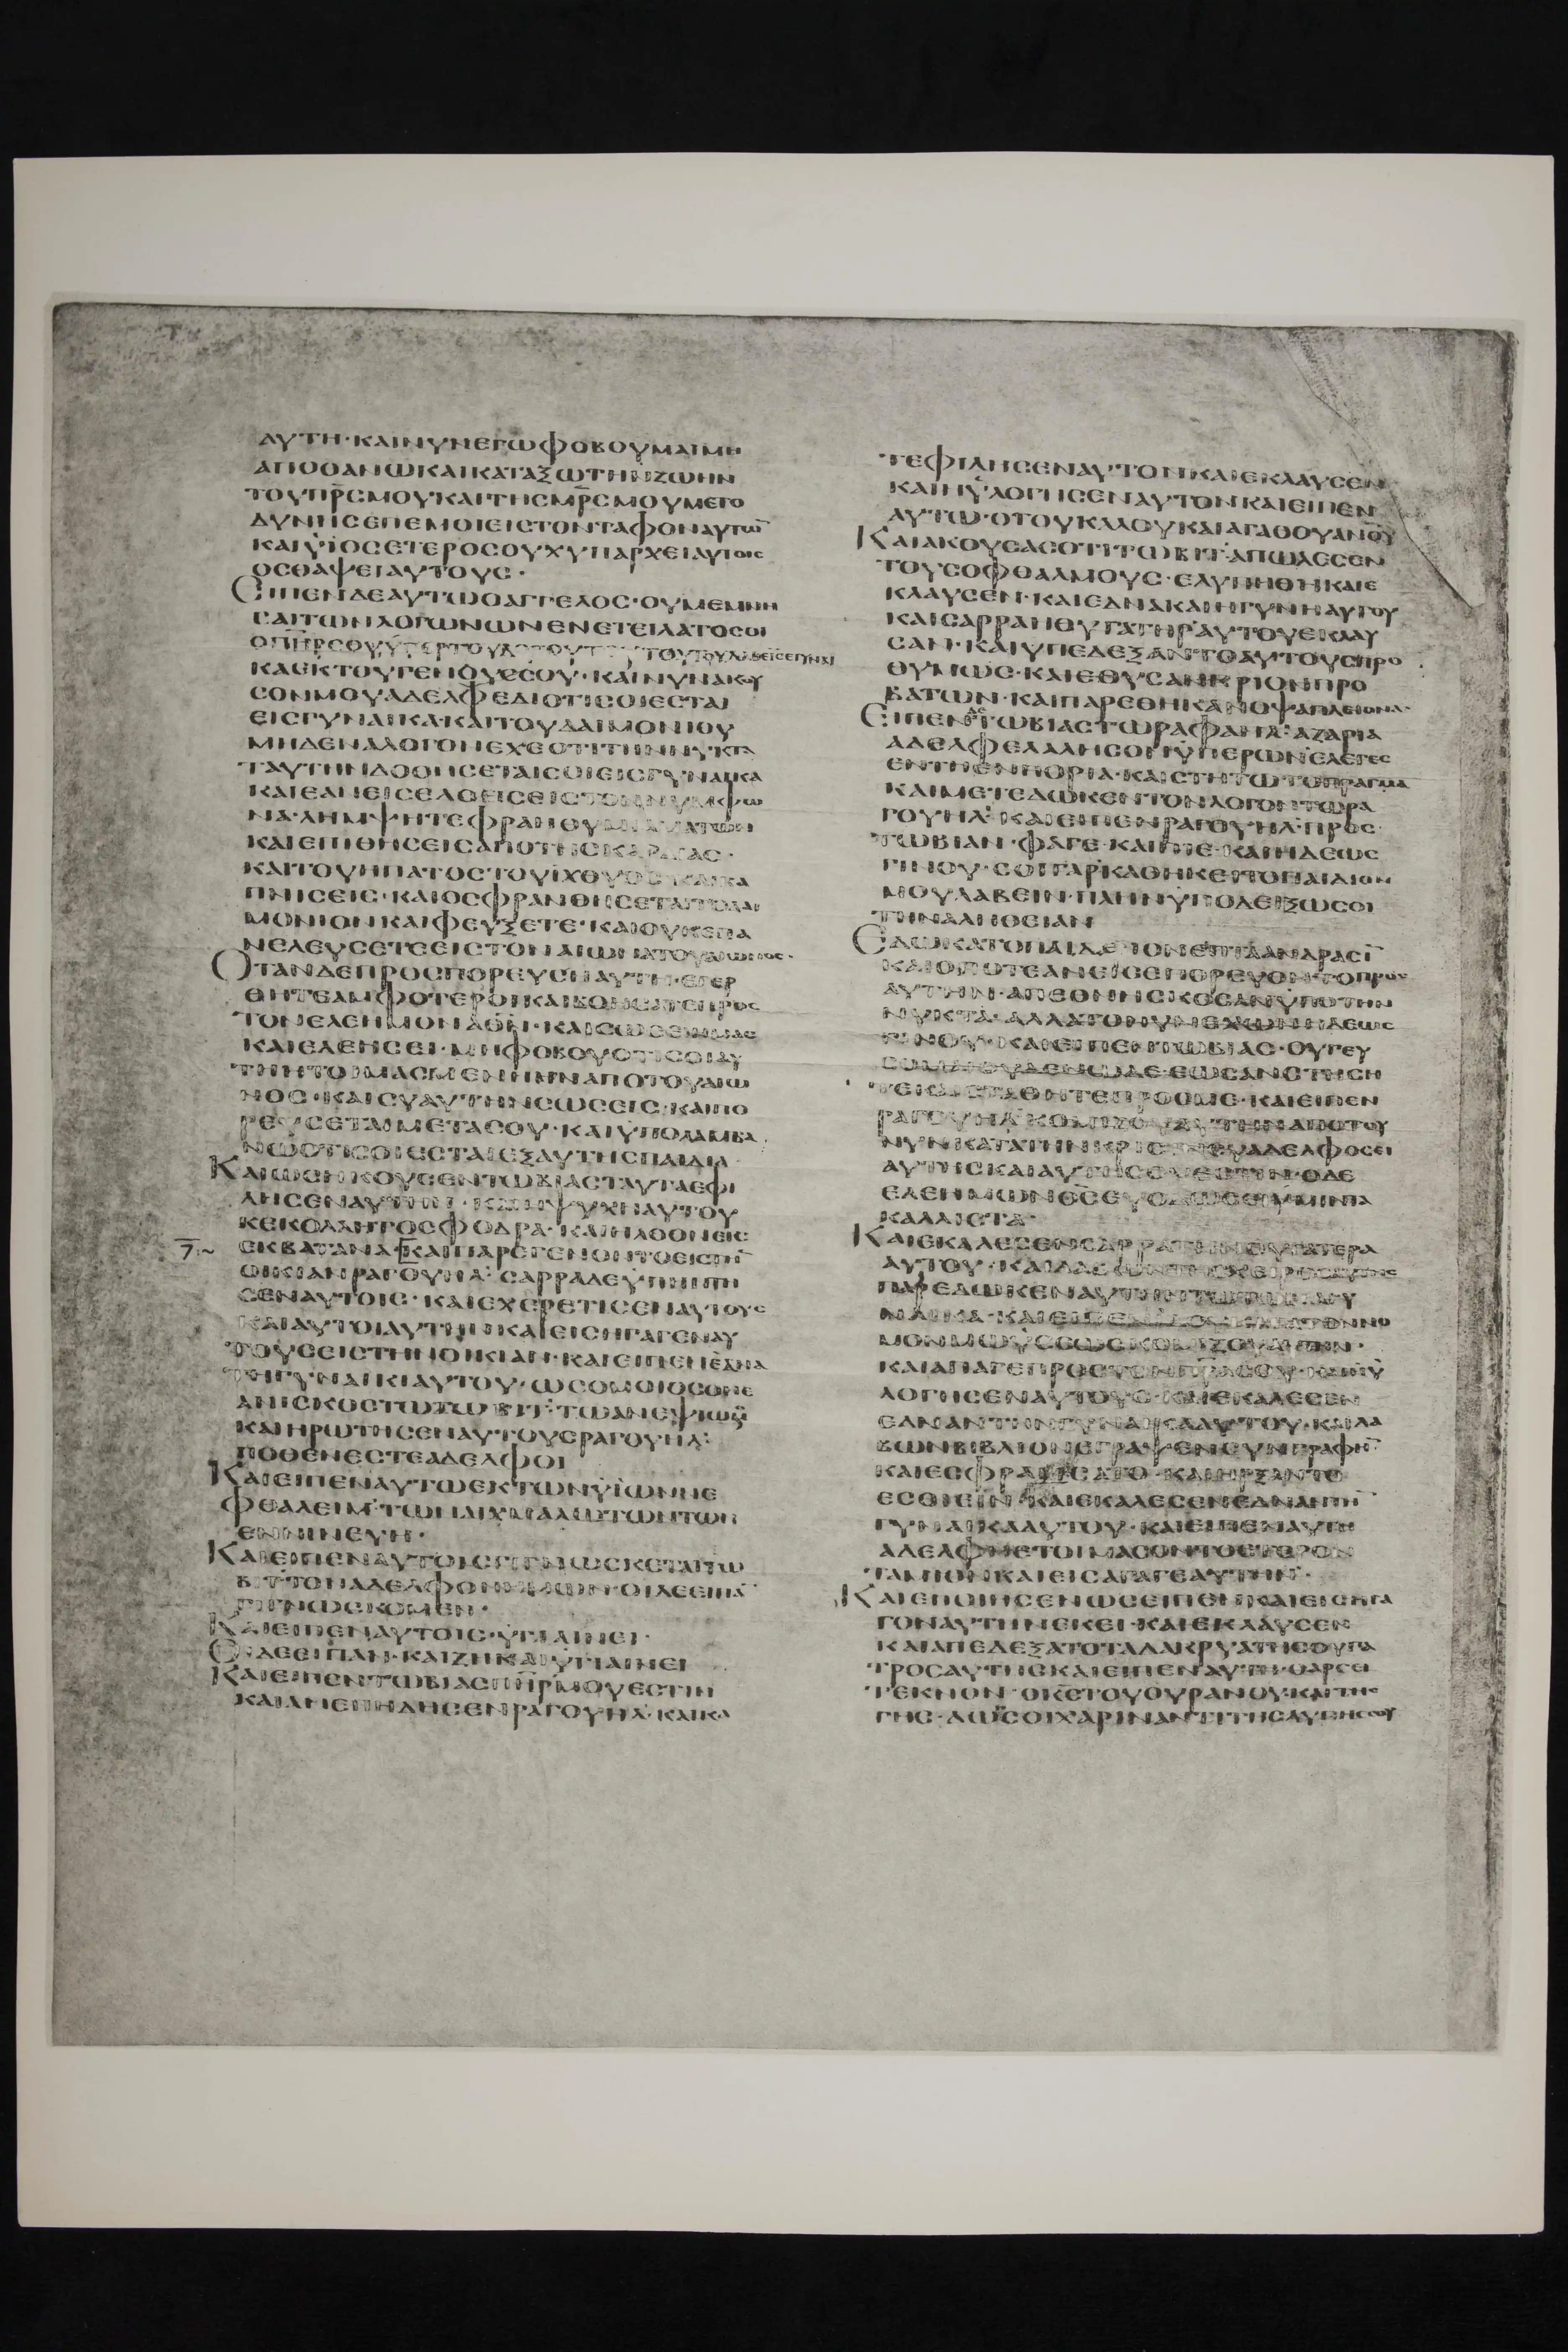 ΑΥΤΗ·ΚΑΙΝΥΝΕΓΩΦΟΒΟΥΜΑΙΜΗ
ΑΠΟΘΑΝΩΚΑΙΚΑΤΑΞΩΤΗΝΖΩΗΝ
ΤΟΥΠΡ̅ϹΜΟΥΚΑΙΤΗϹΜΡ̅ϹΜΟΥΜΕΤΟ
ΔΥΝΗϹΕΠΕΜΟΙΕΙϹΤΟΝΤΑΦΟΝΑΥΤΩ̅
ΚΑΙΥΪΟϹΕΤΕΡΟϹΟΥΧΥΠΑΡΧΕΙΑΥΤΟΙϹ
ΟϹΘΑΨΕΙΑΥΤΟΥϹ·
ΕΙΠΕΝΔΕΑΥΤΩΟΑΓΓΕΛΟϹ·ΟΥΜΕΜΝΗ
ϹΑΙΤΩΝΛΟΓΩΝΩΝΕΝΕΤΕΙΛΑΤΟϹΟΙ
ΟΠΗ̅ΡϹΟΥ
ΚΑΕΚΤΟΥΓΕΝΟΥϹϹΟΥ·ΚΑΙΝΥΝΑΚΟΥ
ϹΟΝΜΟΥΑΔΕΛΦΕΔΙΟΤΙϹΟΙΕϹΤΑΙ
ΕΙϹΓΥΝΑΙΚΑ·ΚΑΙΤΟΥΔΑΙΜΟΝΙΟΥ
ΜΗΔΕΝΑΛΟΓΟΝΕΧΕΟΤΙΤΗΝΝΥΚΤΑ
ΤΑΥΤΗΝΔΟΘΗϹΕΤΑΙϹΟΙΕΙϹΓΥΝΑΙΚΑ
ΚΑΙΕΑΝΕΙϹΕΛΘΕΙϹΕΙϹΤΟΝΝΥΜΦΩ
ΝΑ·ΛΗΜΨΗΤΕΦΡΑΝΘΥΜΙΑΜΑΤΩΝ
ΚΑΙΕΠΙΘΗϹΕΙϹΑΠΟΤΗϹΚΑΡΔΙΑϹ·
ΚΑΙΤΟΥΗΠΑΤΟϹΤΟΥΙΧΘΥΟϹ·ΚΑΙΚΑ
ΠΝΙϹΕΙϹ·ΚΑΙΟϹΦΡΑΝΘΗϹΕΤΑΙΤΟΔΑΙ
ΜΟΝΙΟΝΚΑΙΦΕΥΞΕΤΕ·ΚΑΙΟΥΚΕΠΑ
ΝΕΛΕΥϹΕΤΕΕΙϹΤΟΝΑΙΩΝΑΤΟΥΑΙΩΝΟϹ·
ΟΤΑΝΔΕΠΡΟϹΠΟΡΕΥϹΗΑΥΤΗ·ΕΓΕΡ
ΘΗΤΕΑΜΦΟΤΕΡΟΙΚΑΙΒΟΗϹΑΤΕΠΡΟϹ
ΤΟΝΕΛΕΗΜΟΝΑΘ̅Ν·ΚΑΙϹΩϹΕΙΥΜΑϹ
ΚΑΙΕΛΕΗϹΕΙ·ΜΗΦΟΒΟΥΟΤΙϹΟΙΑΥ
ΤΗΗΤΟΙΜΑϹΜΕΝΗΗΝΑΠΟΤΟΥΑΙΩ
ΝΟϹ·ΚΑΙϹΥΑΥΤΗΝϹΩϹΕΙϹ·ΚΑΙΠΟ
ΡΕΥϹΕΤΑΙΜΕΤΑϹΟΥ·ΚΑΙΥΠΟΛΑΜΒΑ
ΝΩΟΤΙϹΟΙΕϹΤΑΙΕΞΑΥΤΗϹΠΑΙΔΙΑ·
ΚΑΙΩϹΗΚΟΥϹΕΝΤΩΒΙΑϹΤΑΥΤΑΕΦΙ
ΛΗϹΕΝΑΥΤΗΝ·ΚΑΙΗΨΥΧΗΑΥΤΟΥ
ΚΕΚΟΛΛΗΤΟϹΦΟΔΡΑ·ΚΑΙΗΛΘΟΝΕΙϹ
7·~ ΕΚΒΑΤΑΝΑ·[ΚΑΙΠΑΡΕΓΕΝΟΝΤΟΕΙϹΤΗ̅
ΟΙΚΙΑΝΡΑΓΟΥΗΛ·ϹΑΡΡΑΔΕΥΠΗΝΤΗ
ϹΕΝΑΥΤΟΙϹ·ΚΑΙΕΧΕΡΕΤΙϹΕΝΑΥΤΟΥϹ
ΚΑΙΑΥΤΟΙΑΥΤΗΝ·ΚΑΙΕΙϹΗΓΑΓΕΝΑΥ
ΤΟΥϹΕΙϹΤΗΝΟΙΚΙΑΝ·ΚΑΙΕΙΠΕΝΕΔΝΑ
ΤΗΓΥΝΑΙΚΙΑΥΤΟΥ·ΩϹΟΜΟΙΟϹΟΝΕ
ΑΝΙϹΚΟϹΤΩΤΩΒΙΤ·ΤΩΑΝΕΨΙΩΜ̅
ΚΑΙΗΡΩΤΗϹΕΝΑΥΤΟΥϹΡΑΓΟΥΗΛ·
ΠΟΘΕΝΕϹΤΕΑΔΕΛΦΟΙ
ΚΑΙΕΙΠΕΝΑΥΤΩΕΚΤΩΝΥΪΩΝΝΕ
ΦΘΑΛΕΙΜ·ΤΩΝΑΙΧΜΑΛΩΤΩΝΤΩΝ
ΕΝΝΙΝΕΥΗ·
ΚΑΙΕΙΠΕΝΑΥΤΟΙϹΓΙΓΝΩϹΚΕΤΑΙΤΩ
ΒΙΤ·ΤΟΝΑΔΕΛΦΟΝΗΜΩΝ·ΟΙΔΕΕΙΠΑ̅
ΓΙΓΝΩϹΚΟΜΕΝ·
ΚΑΙΕΙΠΕΝΑΥΤΟΙϹ·ΥΓΙΑΙΝΕΙ·
ΟΙΔΕΕΙΠΑΝ·ΚΑΙΖΗΚΑΙΥΓΙΑΙΝΕΙ
ΚΑΙΕΙΠΕΝΤΩΒΙΑϹΠΗ̅ΡΜΟΥΕϹΤΙΝ
ΚΑΙΑΝΕΠΗΔΗϹΕΝΡΑΓΟΥΗΛ·ΚΑΙΚΑ
ΤΕΦΙΛΗϹΕΝΑΥΤΟΝΚΑΙΕΚΛΑΥϹΕΝ
ΚΑΙΗΥΛΟΓΗϹΕΝΑΥΤΟΝΚΑΙΕΙΠΕΝ
ΑΥΤΩ·ΟΤΟΥΚΑΛΟΥΚΑΙΑΓΑΘΟΥΑΝ̅ΟΥ
ΚΑΙΑΚΟΥϹΑϹΟΤΙΤΩΒΙΤ·ΑΠΩΛΕϹΕΝ
ΤΟΥϹΟΦΘΑΛΜΟΥϹ·ΕΛΥΠΗΘΗΚΑΙΕ
ΚΛΑΥϹΕΝ·ΚΑΙΕΔΝΑΚΑΙΗΓΥΝΗΑΥΤΟΥ
ΚΑΙϹΑΡΡΑΗΘΥΓΑΤΗΡΑΥΤΟΥΕΚΛΑΥ
ϹΑΝ·ΚΑΙΥΠΕΔΕΞΑΝΤΟΑΥΤΟΥϹΠΡΟ
ΘΥΜΩϹ·ΚΑΙΕΘΥϹΑΝΚΡΙΟΝΠΡΟ
ΒΑΤΩΝ·ΚΑΙΠΑΡΕΘΗΚΑΝΟΨΑΠΛΕΙΟΝΑ·
ΕΙΠΕΝΔΕΤΩΒΙΑϹΤΩΡΑΦΑΗΛ·ΑΖΑΡΙΑ
ΑΔΕΛΦΕΛΑΛΗϹΟΝΥΠΕΡΩΝΕΛΕΓΕϹ
ΕΝΤΗΕΝΠΟΡΙΑ·ΚΑΙϹΤΗΤΩΤΟΠΡΑΓΜΑ
ΚΑΙΜΕΤΕΔΩΚΕΝΤΟΝΛΟΓΟΝΤΩΡΑ
ΓΟΥΗΛ·ΚΑΙΕΙΠΕΝΡΑΓΟΥΗΛ·ΠΡΟϹ
ΤΩΒΙΑΝ·ΦΑΓΕ·ΚΑΙΠΙΕ·ΚΑΙΗΔΕΩϹ
ΓΙΝΟΥ·ϹΟΙΓΑΡΚΑΘΗΚΕΙΤΟΠΑΙΔΙΟΝ
ΜΟΥΛΑΒΕΙΝ·ΠΛΗΝΥΠΟΔΕΙΞΩϹΟΙ
ΤΗΝΑΛΗΘΕΙΑΝ
ΕΔΩΚΑΤΟΠΑΙΔΙΟΝΕΠΤΑΑΝΔΡΑϹΙ̅
ΚΑΙΟΠΟΤΕΑΝΕΙϹΕΠΟΡΕΥΟΝΤΟΠΡΟϹ
ΑΥΤΗΝ·ΑΠΕΘΝΗϹΚΟϹΑΝΥΠΟΤΗΝ
ΝΥΚΤΑ·ΑΛΛΑΤΟΝΥΝΕΧΩΝΗΔΕΩϹ
ΓΙΝΟΥ·ΚΑΙΕΙΠΕΝΤΩΒΙΑϹ·ΟΥΓΕΥ
ϹΟΜΑΙΟΥΔΕΝΩΔΕ·ΕΩϹΑΝϹΤΗϹΗ
ΤΕΚΑΙϹΤΑΘΗΤΕΠΡΟϹΜΕ·ΚΑΙΕΙΠΕΝ
ΡΑΓΟΥΗΛ·ΚΟΜΙΖΟΥΑΥΤΗΝΑΠΟΤΟΥ
ΝΥΝΚΑΤΑΤΗΝΚΡΙϹΙΝ·ϹΥΑΔΕΛΦΟϹΕΙ
ΑΥΤΗϹΚΑΙΑΥΤΗϹΟΥΕϹΤΙΝ·ΟΔΕ
ΕΛΕΗΜΩΝΘ̅ϹΕΥΟΔΩϹΕΙΥΜΙΝΤΑ
ΚΑΛΛΙϹΤΑ·
ΚΑΙΕΚΑΛΕϹΕΝϹΑΡΡΑΤΗΝΘΥΓΑΤΕΡΑ
ΑΥΤΟΥ·ΚΑΙΛΑΒΩΝΤΗϹΧΕΙΡΟϹΑΥΤΗϹ
ΠΑΡΕΔΩΚΕΝΑΥΤΗΝΤΩ
ΝΑΙΚΑ·ΚΑΙΕΙΠΕΝ
ΜΟΝΜΩΥϹΕΩϹΚΟΜΙΖΟΥΑΥΤΗΝ·
ΚΑΙΑΠΑΓΕΠΡΟϹΤΟΝΠΡ̅ΑϹΟΥ·ΚΑΙΗΥ
ΛΟΓΗϹΕΝΑΥΤΟΥϹ·ΚΑΙΕΚΑΛΕϹΕΝ
ΕΔΝΑΝΤΗΝΓΥΝΑΙΚΑΑΥΤΟΥ·ΚΑΙΛΑ
ΒΩΝΒΙΒΛΙΟΝΕΓΡΑΨΕΝϹΥΝΓΡΑΦΗ̅
ΚΑΙΕϹΦΡΑΓΙϹΑΤΟ·ΚΑΙΗΡΞΑΝΤΟ
ΕϹΘΙΕΙΝ·ΚΑΙΕΚΑΛΕϹΕΝΕΔΝΑΝΤΗ̅
ΓΥΝΑΙΚΑΑΥΤΟΥ·ΚΑΙΕΙΠΕΝΑΥΤΗ
ΑΔΕΛΦΗΕΤΟΙΜΑϹΟΝΤΟΕΤΕΡΟΝ
ΤΑΜΙΟΝΚΑΙΕΙϹΑΓΑΓΕΑΥΤΗΝ·
ΚΑΙΕΠΟΙΗϹΕΝΩϹΕΙΠΕΝ·ΚΑΙΕΙϹΗΓΑ
ΓΟΝΑΥΤΗΝΕΚΕΙ·ΚΑΙΕΚΛΑΥϹΕΝ
ΚΑΙΑΠΕΔΕΞΑΤΟΤΑΔΑΚΡΥΑΤΗϹΘΥΓΑ
ΤΡΟϹΑΥΤΗϹΚΑΙΕΙΠΕΝΑΥΤΗ·ΘΑΡϹΕΙ
ΤΕΚΝΟΝ·ΟΚ̅ϹΤΟΥΟΥΡΑΝΟΥΚΑΙΤΗϹ
ΓΗϹ·ΔΩΗϹΟΙΧΑΡΙΝΑΝΤΙΤΗϹΛΥΠΗϹϹΟΥ